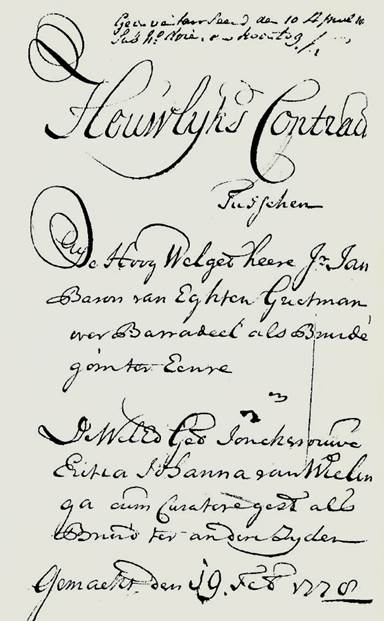 den 10
Houwlyks Contract
Tusschen
De Hoog Welgeb heere Jr. Jan
Baron van Eghten Grietman
over Barradeel als Bruide
gom ter Eenre
De WelEd Geb Jonckvrouwe
Eritia Johanna van Wielin
ga cum Curatore gest als
Bruid ter andere Zyden
Gemackt den 19. Feb 1778